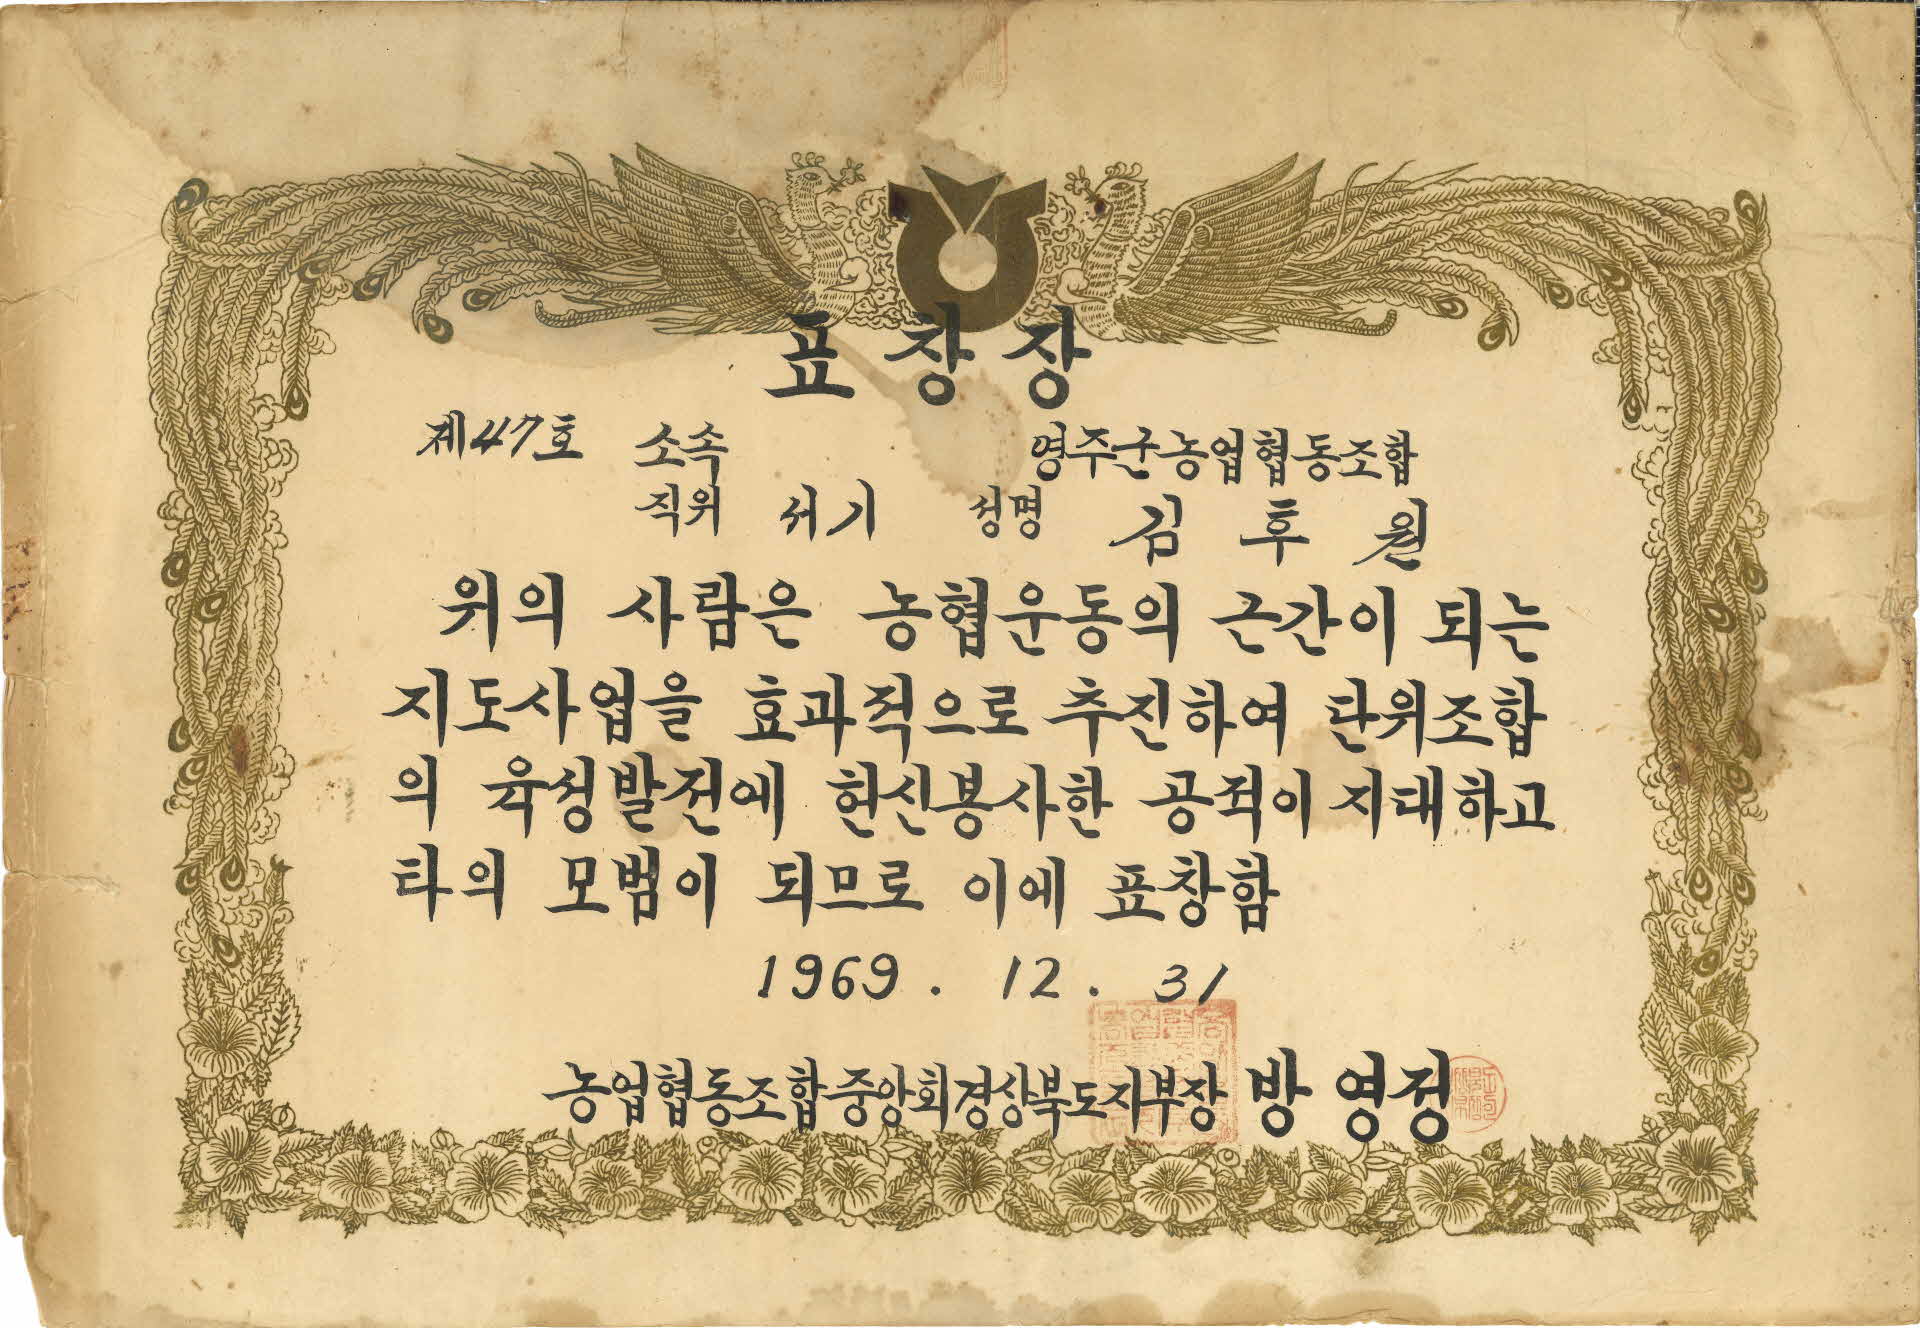 표창장
제47호 소속 영주군농업협동조합
직위 서기 성명 김후원
위의 사람은 농협운동의 근간이 되는
지도사업을 효과적으로 추진하여 단위조합
의 육성발전에 헌신봉사한 공적이 지대하고
타의 모범이 되므로 이에 표창함
1969. 12. 31
농업협동조합중앙회경상북도지부장 방영정